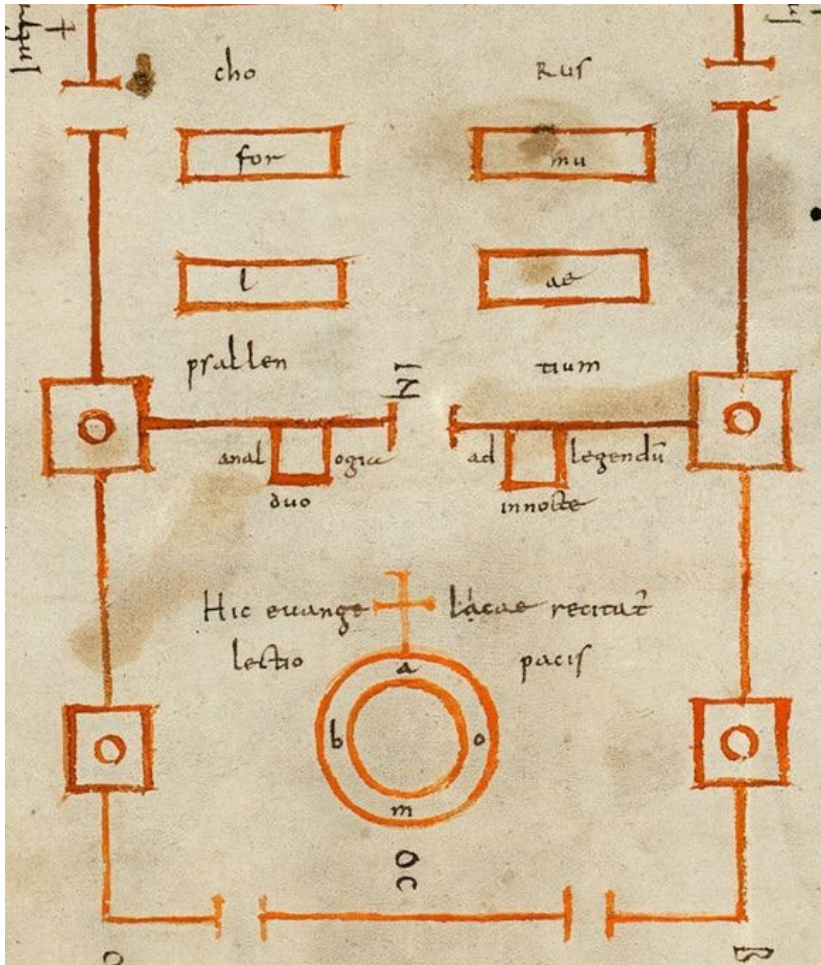 cho Rus
for mu
l ae
psallen tium
IN
anal ogia ad legendū
duo innocte
Hic evange licae recitat̄
lectio pacis
a
b o
m
OC
B